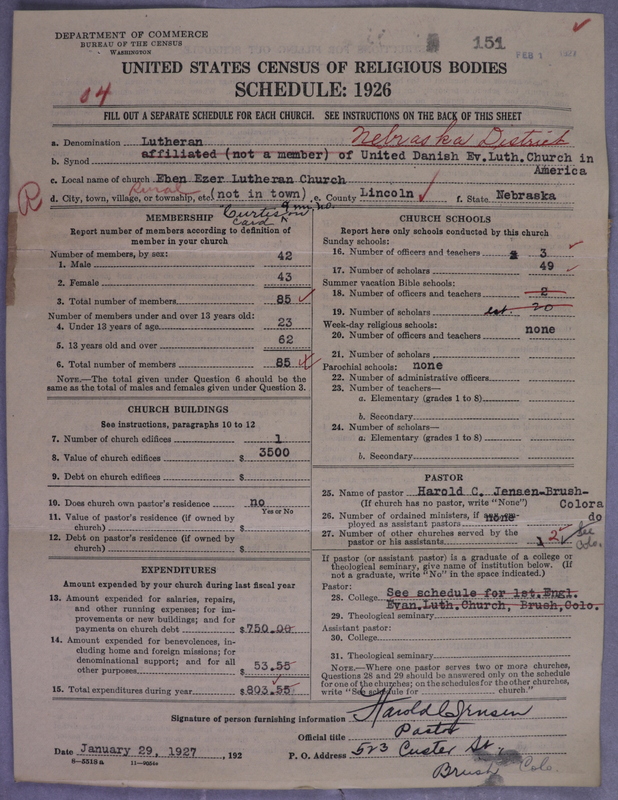 DEPARTMENT OF COMMERCE
BUREAU OF THE CENSUS
WASHINGTON
151
FEB 1 1927
UNITED STATES CENSUS OF RELIGIOUS BODIES
SCHEDULE: 1926
04
FILL OUT A SEPARATE SCHEDULE FOR EACH CHURCH. SEE INSTRUCTIONS ON THE BACK OF THIS SHEET
a. Denomination Lutheran Nebraska District
b. Synod affiliated (not a member) of United Danish Ev.Luth.Church in America
c. Local name of church Eben Ezer Lutheran Church
R
d. City, town, village, or township, etc. rural (not in town), e. County Lincoln f. State Nebraska
Curtis
card
MEMBERSHIP
Report number of members according to definition of member in your church
Number of members, by sex:
1. Male 42
2. Female 43
3. Total number of members 85
Number of members under and over 13 years old:
4. Under 13 years of age 23
5. 13 years old and over 62
6. Total number of members 85
NOTE.—The total given under Question 6 should be the same as the total of males and females given under Question 3.
CHURCH BUILDINGS
See instructions, paragraphs 10 to 12
7. Number of church edifices 1
8. Value of church edifices $ 3500
9. Debt on church edifices $
10. Does church own pastor's residence no
Yes or No
11. Value of pastor's residence (if owned by church) $
12. Debt on pastor's residence (if owned by church) $
EXPENDITURES
Amount expended by your church during last fiscal year
13. Amount expended for salaries, repairs, and other running expenses; for improvements or new buildings; and for payments on church debt $750.00
14. Amount expended for benevolences, including home and foreign missions; for denominational support; and for all other purposes 53.55
15. Total expenditures during year $803.55
CHURCH SCHOOLS
Report here only schools conducted by this church
Sunday schools:
16. Number of officers and teachers 3
17. Number of scholars 49
Summer vacation Bible schools:
18. Number of officers and teachers 2
19. Number of scholars est. 20
Week-day religious schools:
20. Number of officers and teachers none
21. Number of scholars
Parochial schools: none
22. Number of administrative officers
23. Number of teachers—
a. Elementary (grades 1 to 8)
b. Secondary
24. Number of scholars—
a. Elementary (grades 1 to 8)
b. Secondary
PASTOR
25. Name of pastor Harold C. Jensen-Brush-Colorado
(If church has no pastor, write "None")
26. Number of ordained ministers, if any, employed as assistant pastors none
27. Number of other churches served by the pastor or his assistants 2 See Colo.
If pastor (or assistant pastor) is a graduate of a college or theological seminary, give name of institution below. (If not a graduate, write "No" in the space indicated.)
Pastor:
28. College See schedule for 1st.Engl.
Evan.Luth.Church, Brush,Colo.
29. Theological seminary
Assistant pastor:
30. College
31. Theological seminary
NOTE.—Where one pastor serves two or more churches, Questions 28 and 29 should be answered only on the schedule for one of the churches; on the schedules for the other churches, write "See schedule for ______ church."
Signature of person furnishing information Harold C Jensen
Official title Pastor
Date January 29, 1927, 192
P. O. Address 523 Custer St.,
Brush Colo.
8-5518 a